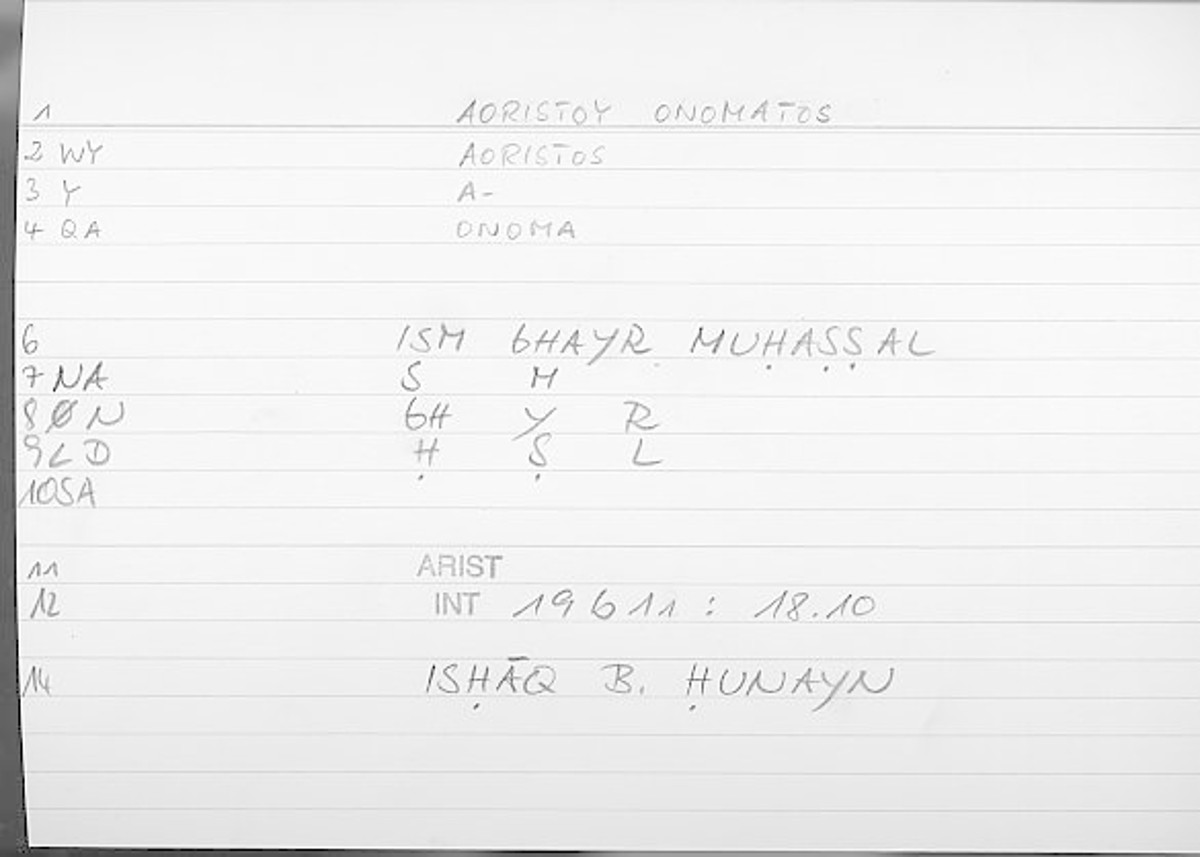 1 AORISTOY ONOMATOS
2 WY AORISTOS
3 Y A-
4 QA ONOMA
6 ISM GHAYR MUḤAṢṢAL
7 NA S M
8 ØN GH Y R
9 LD Ḥ Ṣ L
10 SA
11 ARIST
12 INT 19 6 11 : 18.10
14 ISḤĀQ B. ḤUNAYN